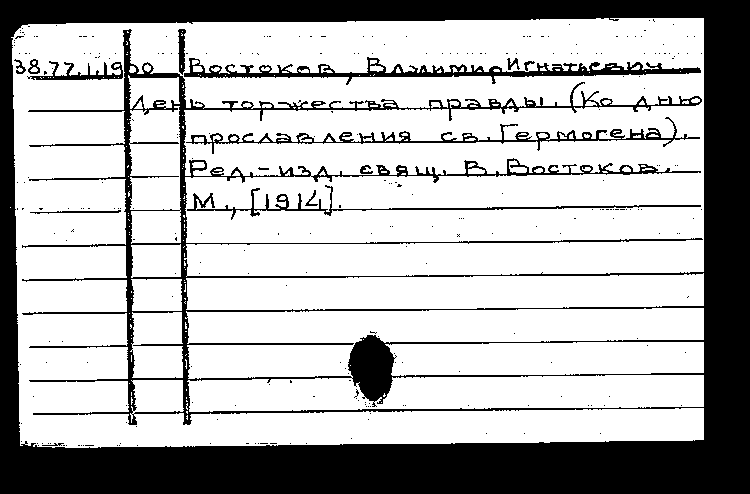 38.77.1.1900 Востоков, Владимир Игнатьевич
День торжества правды. (Ко дню
прославления св. Гермогена).
Ред.-изд. свящ. В. Востоков.
М., [1914].